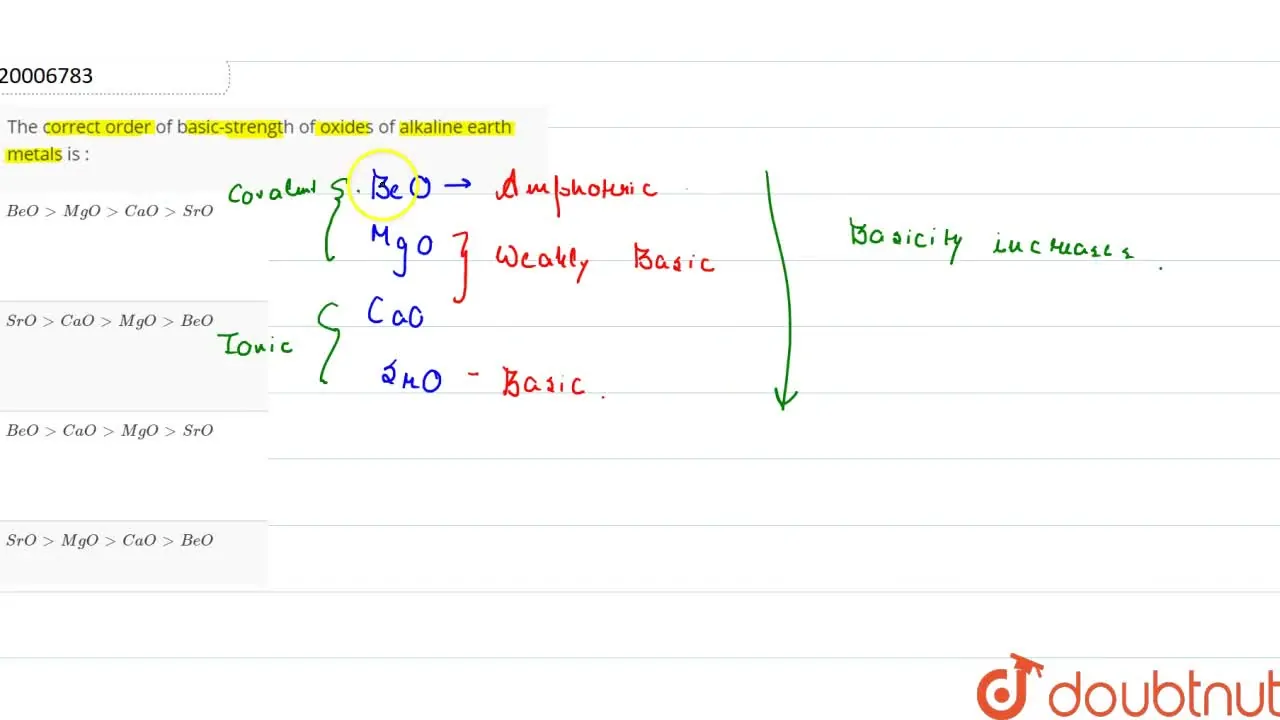 20006783
The correct order of basic-strength of oxides of alkaline earth
metals is :
BeO > MgO > CaO > SrO
SrO > CaO > MgO > BeO
BeO > CaO > MgO > SrO
SrO > MgO > CaO > BeO
Covalent
BeO → Amphoteric
MgO
Weakly Basic
CaO
Ionic
SrO - Basic.
Basicity increases.
doubtnut